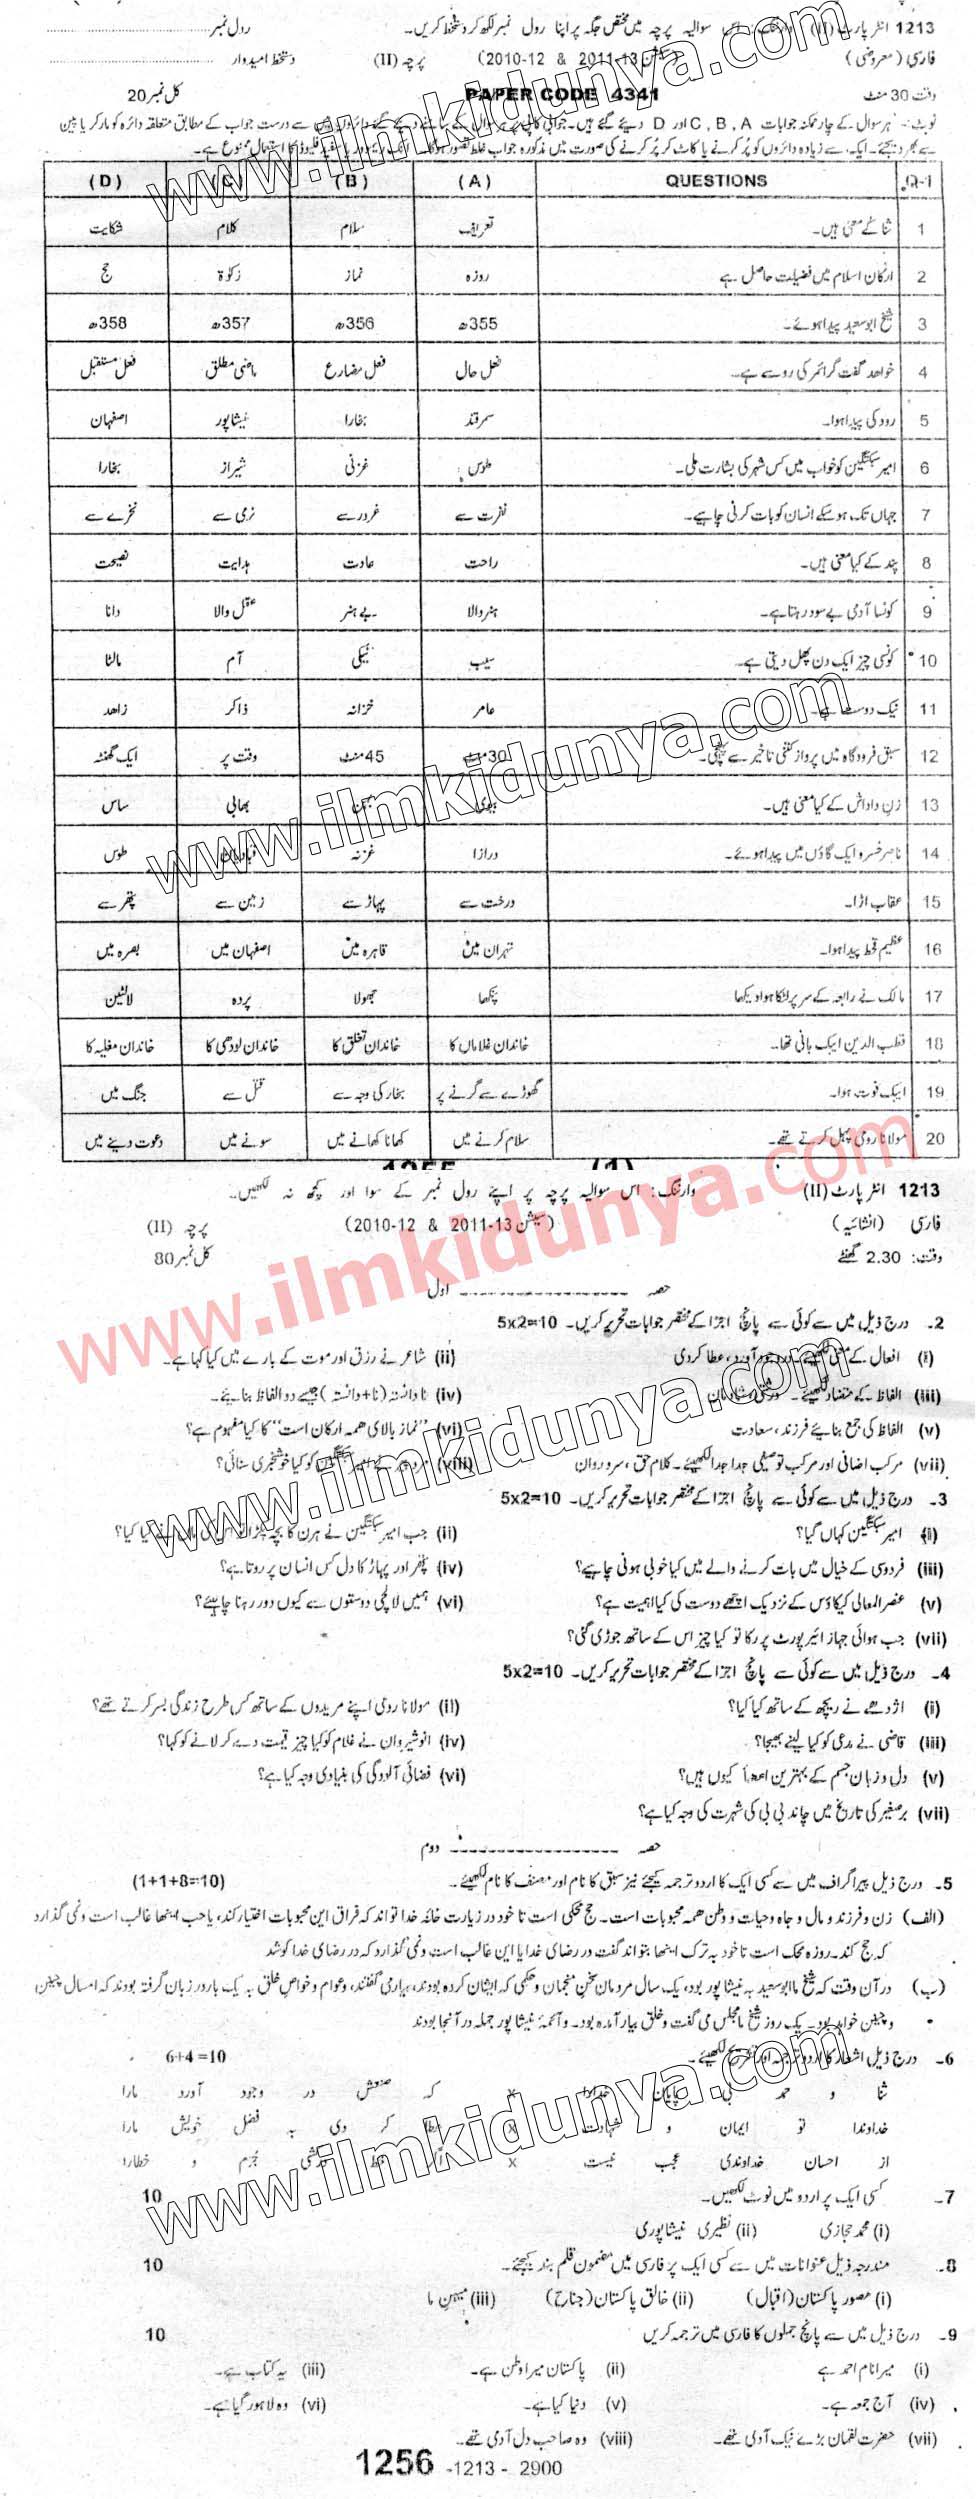 1213 انٹر پارٹ (II) وارننگ: اس سوالیہ پرچہ میں مختص جگہ پر اپنا رول نمبر لکھ کر دستخط کریں۔ رول نمبر
فارسی (معروضی) (سیشن 2011-13 & 2010-12) پرچہ (II) دستخط امیدوار
وقت 30 منٹ PAPER CODE 4341 کل نمبر 20
نوٹ:- ہر سوال کے چار ممکنہ جوابات A ,B ,C اور D دیئے گئے ہیں۔ جوابی کاپی پر ہر سوال کے سامنے دیئے گئے دائروں میں سے درست جواب کے مطابق متعلقہ دائرہ کو مارکر یا پین
سے بھر دیجئے۔ ایک سے زیادہ دائروں کو پُر کرنے یا کاٹ کر پُر کرنے کی صورت میں مذکورہ جواب غلط تصور ہوگا۔ کا استعمال ممنوع ہے۔
Q-1 QUESTIONS (A) (B) (C) (D)
1 ثنا کے معنی ہیں۔ تعریف سلام کلام شکایت
2 ارکان اسلام میں فضیلت حاصل ہے روزہ نماز زکوٰۃ حج
3 شیخ ابو سعید پیدا ہوئے۔ 355ھ 356ھ 357ھ 358ھ
4 خواهد گفت گرائمر کی رو سے ہے۔ فعل حال فعل مضارع ماضی مطلق فعل مستقبل
5 رودکی پیدا ہوا۔ سمرقند بخارا نیشاپور اصفہان
6 امیر سبکتگین کو خواب میں کس شہر کی بشارت ملی۔ طوس غزنی شیراز بخارا
7 جہاں تک ہو سکے انسان کو بات کرنی چاہیے۔ نفرت سے غرور سے نرمی سے نخرے سے
8 پند کے کیا معنی ہیں۔ راحت عادت ہدایت نصیحت
9 کونسا آدمی بے سود رہتا ہے۔ ہنر والا بے ہنر عقل والا دانا
10 کونسی چیز ایک دن پھل دیتی ہے۔ سیب نیکی آم مالٹا
11 نیک دوست ہے۔ عامر خزانہ ذاکر زاھد
12 سبق فرودگاہ میں پرواز کتنی تاخیر سے پہنچی۔ 30 منٹ 45 منٹ وقت پر ایک گھنٹہ
13 زن داداش کے کیا معنی ہیں۔ بیوی بہن بھابی ساس
14 ناصر خسرو ایک گاؤں میں پیدا ہوئے۔ درازا غزنہ قبادیان طوس
15 عقاب اڑا۔ درخت سے پہاڑ سے زمین سے پتھر سے
16 عظیم قحط پیدا ہوا۔ تہران میں قاہرہ میں اصفہان میں بصرہ میں
17 مالک نے رابعہ کے سر پر لٹکا ہوا دیکھا پنکھا جھولا پردہ لالٹین
18 قطب الدین ایبک بانی تھا۔ خاندان غلاماں کا خاندان تغلق کا خاندان لودھی کا خاندان مغلیہ کا
19 ایبک فوت ہوا۔ گھوڑے سے گرنے پر بخار کی وجہ سے قتل سے جنگ میں
20 مولانا رومی پہل کرتے تھے۔ سلام کرنے میں کھانا کھانے میں سونے میں دعوت دینے میں
1213 انٹر پارٹ (II) وارننگ: اس سوالیہ پرچہ پر اپنے رول نمبر کے سوا اور کچھ نہ لکھیں۔
فارسی (انشائیہ) (سیشن 2011-13 & 2010-12) پرچہ (II)
وقت: 2.30 گھنٹے کل نمبر 80
حصہ اول
2۔ درج ذیل میں سے کوئی سے پانچ اجزا کے مختصر جوابات تحریر کریں۔ 5x2=10
(i) افعال کے معنی لکھیے۔ در وجود آورد، عطا کردی (ii) شاعر نے رزق اور موت کے بارے میں کیا کہا ہے۔
(iii) الفاظ کے متضاد لکھیئے۔ (iv) نادانستہ (نا+دانستہ) جیسے دو الفاظ بنائیے۔
(v) الفاظ کی جمع بنائیے فرزند، سعادت (vi) "نماز بالای همه ارکان است" کا کیا مفہوم ہے؟
(vii) مرکب اضافی اور مرکب توصیفی جدا جدا لکھیئے۔ کلام حق، سرو روان (viii) سبکتگین کو کیا خوشخبری سنائی؟
3۔ درج ذیل میں سے کوئی سے پانچ اجزا کے مختصر جوابات تحریر کریں۔ 5x2=10
(i) امیر سبکتگین کہاں گیا؟ (ii) جب امیر سبکتگین نے ہرن کا بچہ پکڑا تو اس کی ماں نے کیا کیا؟
(iii) فردوسی کے خیال میں بات کرنے والے میں کیا خوبی ہونی چاہیے؟ (iv) پتھر اور پہاڑ کا دل کس انسان پر روتا ہے؟
(v) عنصر المعالی کیکاؤس کے نزدیک اچھے دوست کی کیا اہمیت ہے؟ (vi) ہمیں لالچی دوستوں سے کیوں دور رہنا چاہیئے؟
(vii) جب ہوائی جہاز ائیر پورٹ پر رکا تو کیا چیز اس کے ساتھ جوڑی گئی؟
4۔ درج ذیل میں سے کوئی سے پانچ اجزا کے مختصر جوابات تحریر کریں۔ 5x2=10
(i) اژدھے نے ریچھ کے ساتھ کیا کیا؟ (ii) مولانا رومی اپنے مریدوں کے ساتھ کس طرح زندگی بسر کرتے تھے؟
(iii) قاضی نے مدعی کو کیا لینے بھیجا؟ (iv) انوشیروان نے غلام کو کیا چیز قیمت دے کر لانے کو کہا؟
(v) دل و زبان جسم کے بہترین اعضا کیوں ہیں؟ (vi) فضائی آلودگی کی بنیادی وجہ کیا ہے؟
(vii) برصغیر کی تاریخ میں چاند بی بی کی شہرت کی وجہ کیا ہے؟
حصہ دوم
5۔ درج ذیل پیراگراف میں سے کسی ایک کا اردو ترجمہ کیجئے نیز سبق کا نام اور مصنف کا نام لکھیئے۔ (1+1+8=10)
(الف) زن و فرزند و مال و جاه و حیات و وطن همه محبوبات است۔ حج محکی است تا خود در زیارت خانه خدا تواند که فراق این محبوبات اختیار کند، یا حب اینها غالب است و نمی گذارد
که حج کند۔ روزه محک است تا خود به ترک اینها بتواند گفت در رضای خدا یا این غالب است و نمی گذارد که در رضای خدا کوشد
(ب) در آن وقت که شیخ ما ابو سعید به نیشاپور بود، یک سال مردمان سخن منجمان و حکمی که ایشان کرده بودند، بسیار می گفتند، و عوام و خواص خلق به یک بار در زبان گرفته بودند که امسال چنین
و چنین خواهد بود۔ یک روز شیخ ما مجلس می گفت و خلق بسیار آمده بود۔ و آئمهٔ نیشاپور جمله در آنجا بودند
6۔ درج ذیل اشعار کا اردو ترجمہ اور تشریح لکھیئے۔ 6+4=10
ثنا و حمد بی پایان خدا را x که صنعش در وجود آورد مارا
خداوندا تو ایمان و شهادت x عطا کردی به فضل خویش مارا
از احسان خداوندی عجب نیست x اگر خط درکشی جُرم و خطارا
7۔ کسی ایک پر اردو میں نوٹ لکھیں۔ 10
(i) محمد حجازی (ii) نظیری نیشاپوری
8۔ مندرجہ ذیل عنوانات میں سے کسی ایک پر فارسی میں مضمون قلم بند کیجئے۔ 10
(i) مصور پاکستان (اقبال) (ii) خالق پاکستان (جناح) (iii) میهن ما
9۔ درج ذیل میں سے پانچ جملوں کا فارسی میں ترجمہ کریں 10
(i) میرا نام احمد ہے (ii) پاکستان میرا وطن ہے۔ (iii) یہ کتاب ہے۔
(iv) آج جمعہ ہے۔ (v) دنیا کیا ہے۔ (vi) وہ لاہور گیا ہے۔
(vii) حضرت لقمان بڑے نیک آدمی تھے۔ (viii) وہ صاحب دل آدمی تھے۔
1256 -1213 - 2900
www.ilmkidunya.com
www.ilmkidunya.com
www.ilmkidunya.com
www.ilmkidunya.com
www.ilmkidunya.com